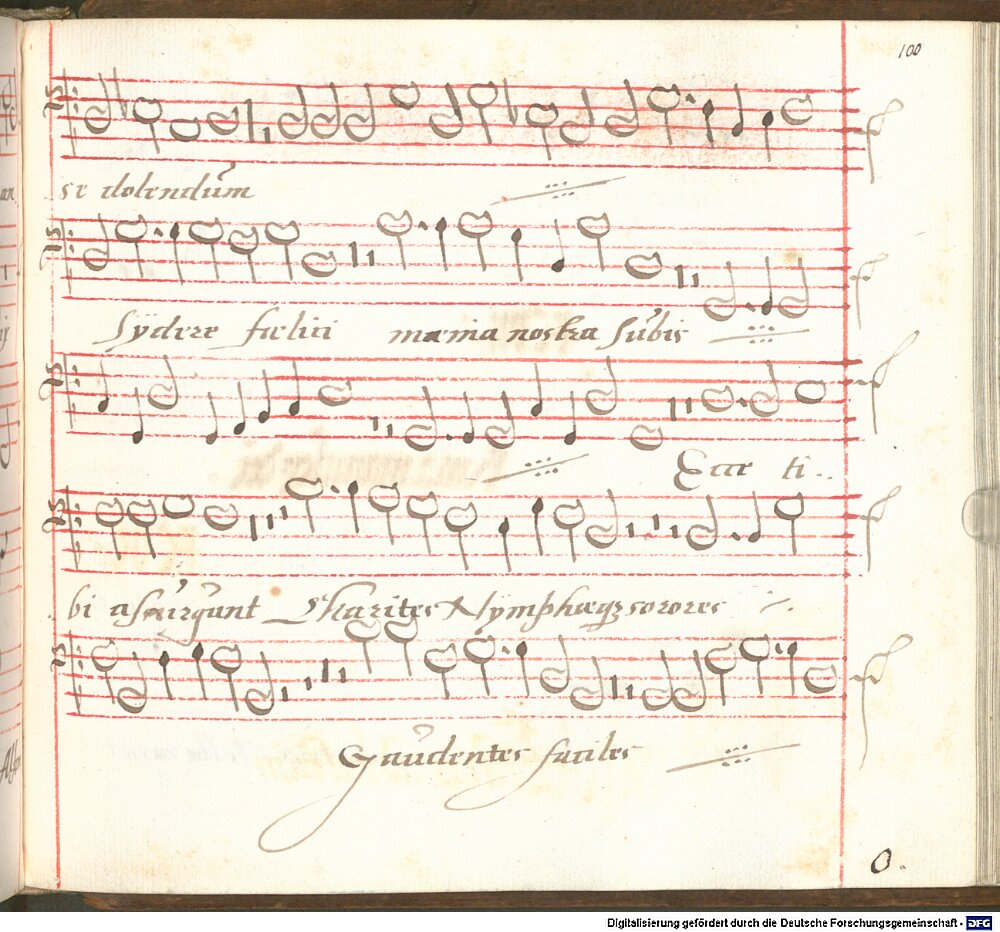 100
se dolendum
Sÿdere fœlici mœnia nostra subis
Ecce ti
bi assurgunt Charites Nÿmphæqз sorores
Gaudentes faciles
O.
Digitalisierung gefördert durch die Deutsche Forschungsgemeinschaft - DFG